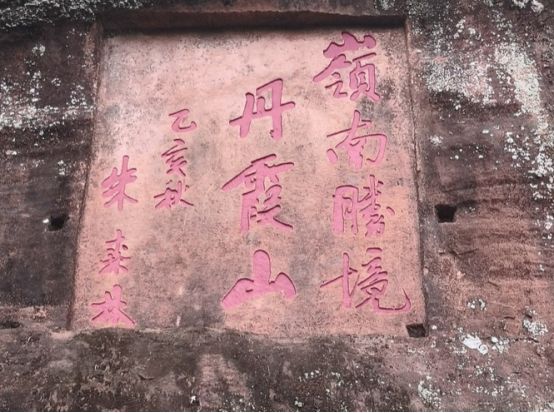 嶺南勝境
丹霞山
乙亥秋
朱森林